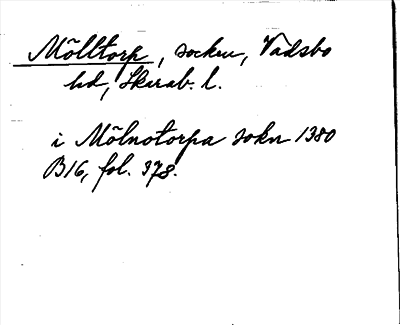 Mölltorp, socken, Vadsbo
hd, Skarab. l.
i Mölnotorpa sokn 1380
B16, fol. 378.